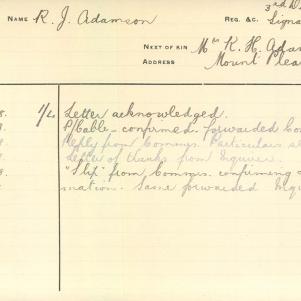 NAME R. J. Adamson REG. &C. 3rd D
Signa
NEXT OF KIN Mrs K. H. Ada
ADDRESS Mount Plea
8. 1/2 Letter acknowledged.
P/Cable - confirmed. forwarded Co
Reply from Commrs. Particulars s
Letter of thanks from Inquirer.
"Slip" from Commrs. confirming
mation. Same forwarded Inq